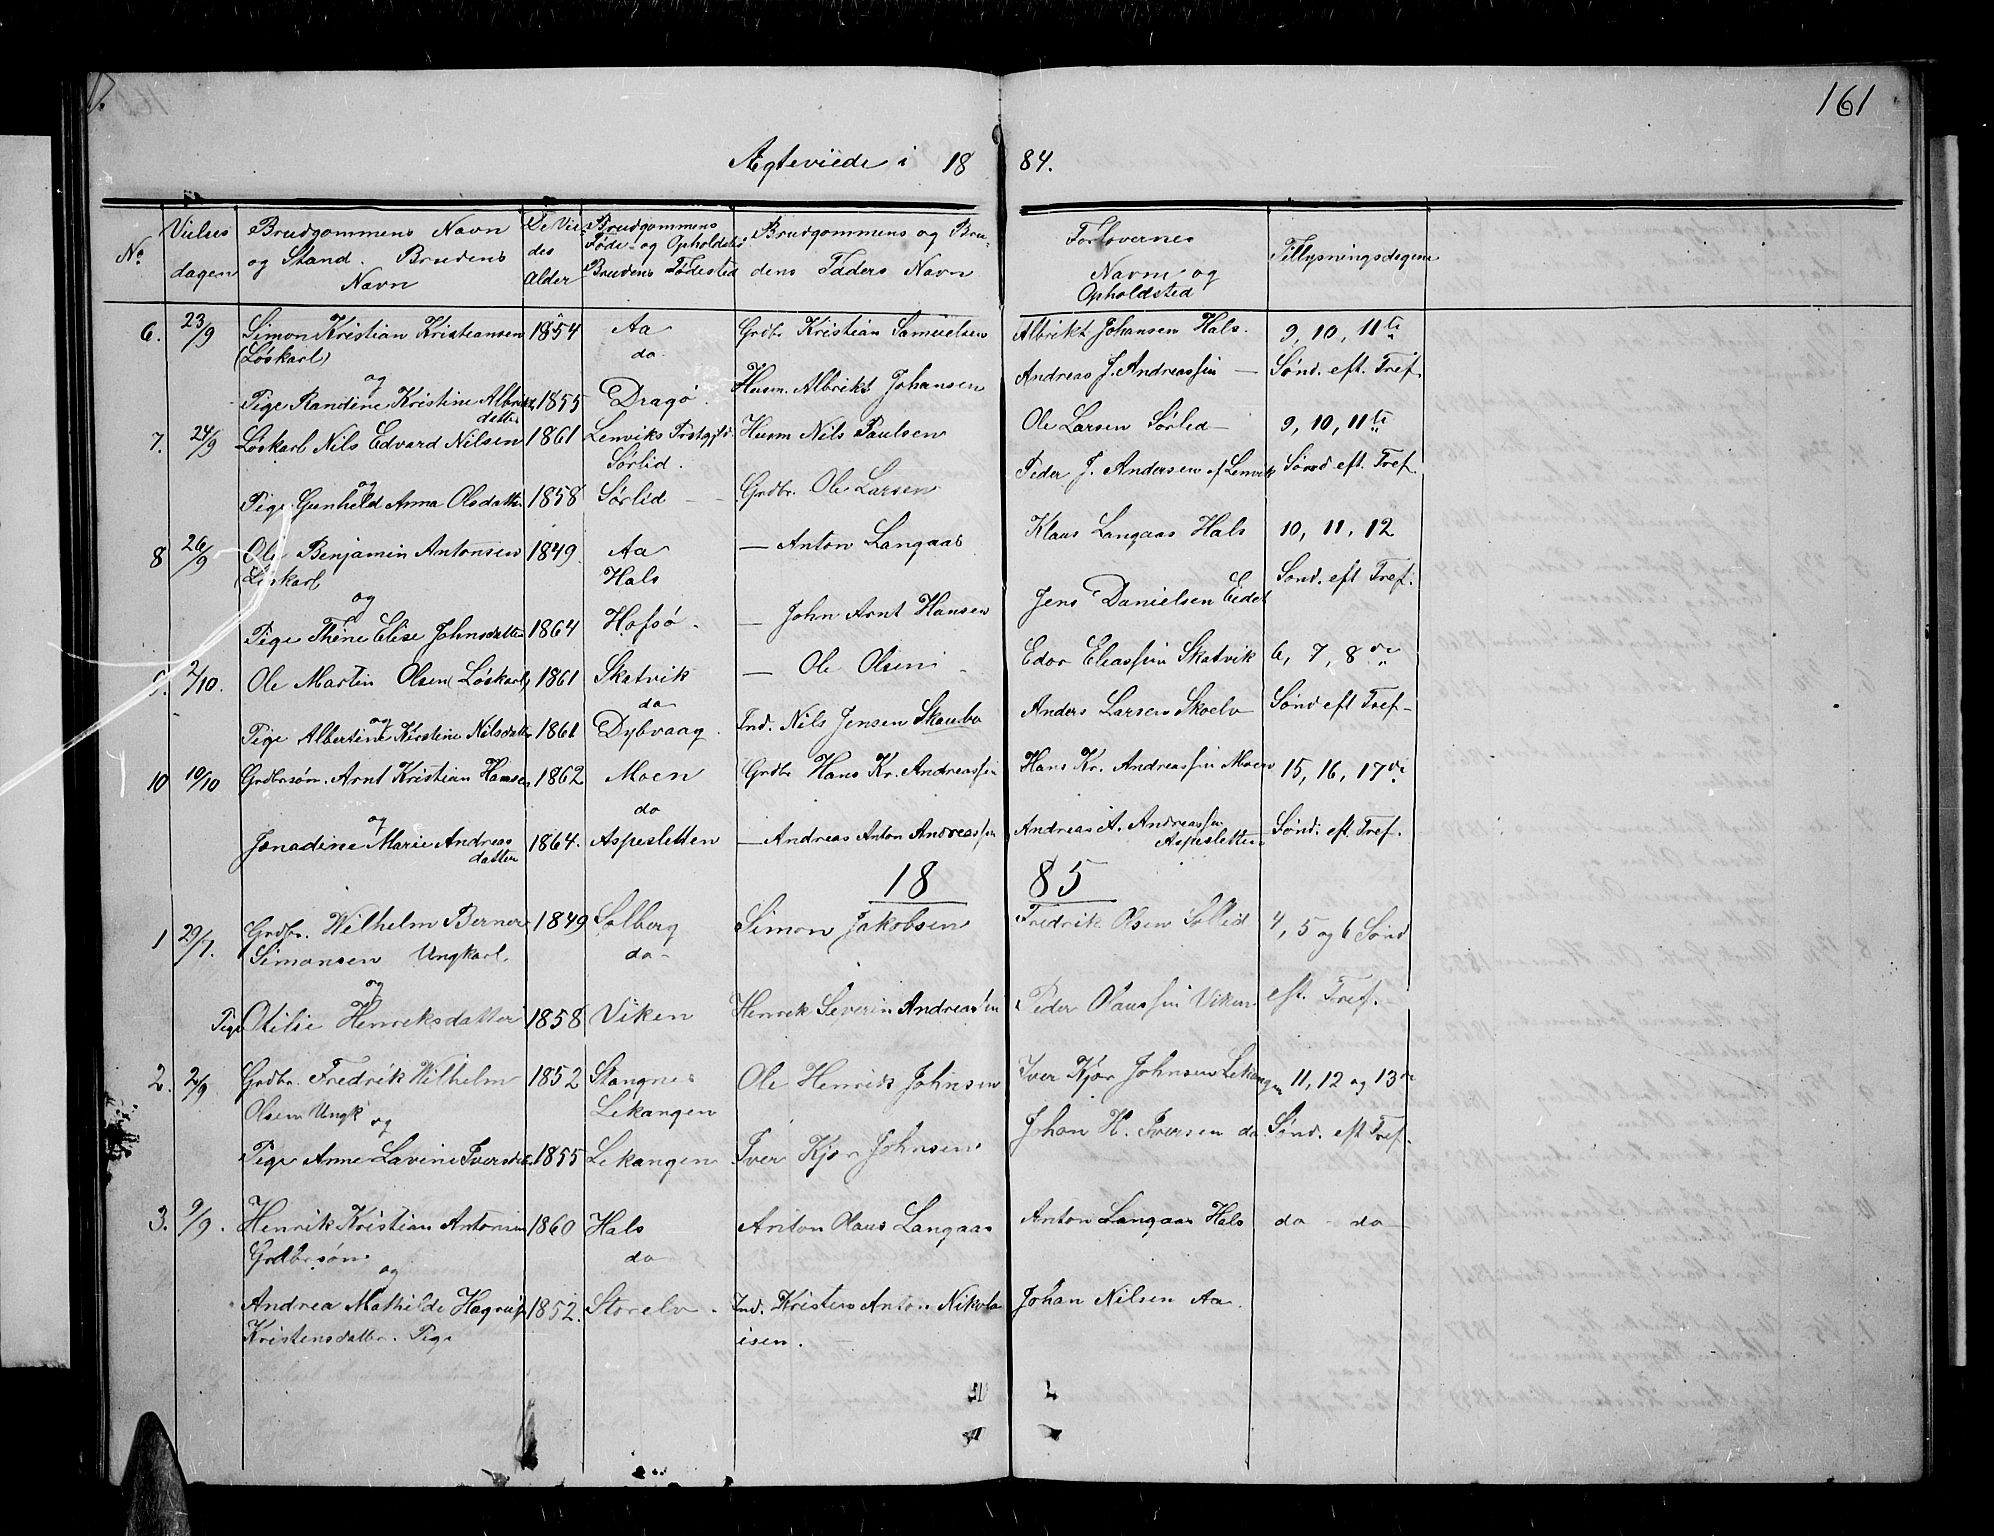 161
Ægteviede i 1884.
No
Vielses dagen
Brudgommens Navn og Stand. Brudens Navn
De Viedes Alder
Brudgommens Føde- og Opholdsted Brudens Fødested
Brudgommens og Brudens Faders Navn
Forlovernes Navne og Opholdsted
Tillysningsdagene
6. 23/9 Simon Kristian Kristiansen 1854 Aa Grdbr Kristian Samuelsen Albrikt Johansen Hals. 9, 10, 11te
(Løskarl) do Sønd. eft. Tref.
og Husm. Albrikt Johansen Andreas J. Andreassen —
Pige Randine Kristine Albrikts 1855 Dragø.
datter
7. 24/9 Løskarl Nils Edvard Nilsen 1861 Lenviks Prstgjld. Husm Nils Paulsen Ole Larsen Sørlid — 9, 10, 11te
Sørlid. Peder J. Andersen af Lenvik Sønd eft. Tref
og
Pige Gunhild Anna Olsdatter 1858 Sørlid — Grdbr. Ole Larsen
8 26/9 Ole Benjamin Antonsen 1849. Aa — Anton Langaas Klaus Langaas Hals 10, 11, 12
(Løskarl Hals Sønd. eft Tref.
og Jens Danielsen Eidet
Pige Thine Elise Johnsdatter 1864 Hofsø. — John Arnt Hansen
9. 2/10. Ole Martin Olsen (Løskarl) 1861 Skatvik — Ole Olsen Edor Eliassen Skatvik 6, 7, 8de
og do Anders Larsen Skoelv Sønd eft Tref.
Pige Albertine Kirstine Nilsdatter 1861 Dybvaag. Ind. Nils Jensen Skaubo
10 19/10 Grdbrsøn. Arnt Kristian Hansen 1862 Moen Grdbr Hans Kr. Andreassen Hans Kr. Andreassen Moen 15, 16, 17de
og do Andreas A. Andreassen Sønd. eft Tref.
Jenadine Marie Andreas 1864. Aspesletten — Andreas Anton Andreassen Aspesletten
datter
1885
1 29/7. Grdbr. Wilhelm Berner 1849 Solberg Simon Jakobsen Fredrik Olsen Sollid 4, 5 og 6 Sønd
Simonsen Ungkarl. do
og
Pige Otilie Henriksdatter 1858 Viken Henrik Severin Andreassen Peder Olaussen Viken eft. Tref.
2. 2/9 Grdbr. Fredrik Wilhelm 1852 Stangnes Ole Henrik Johnsen Iver Kjær Johnsen Lekangen 11, 12 og 13de
Olsen Ungk og Lekangen Johan H. Iversen do Sønd. eft Tref.
Pige Anne Lavine Iversdtr. 1855 Lekangen Iver Kjær Johnsen
3. 9/9. Henrik Kristian Antonsen 1860 Hals Anton Olaus Langaas Anton Langaas Hals do do
Grdbrsøn do
og
Andrea Mathilde Hagrup 1852. Storelv. Ind. Kristen Anton Nikola Johan Nilsen Aa.
Kristensdatter. Pige isen.